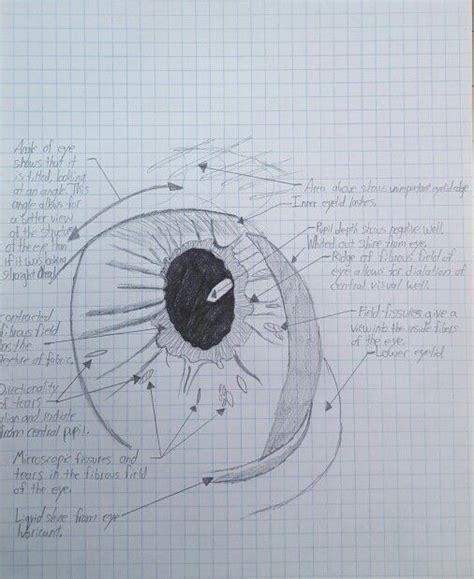 Angle of eye
shows that it
is tilted, looking
at an angle. This
angle allows for
a better view
of the structure
of the eye than
if it was looking
straight
Area above shows unimportant eyelid edge
Inner eyelid lashes.
Pupil depth shows negative well.
Whited out shine from eye.
Ridge of fibrous field of
eye allows for dialation of
central visual well.
Field fissures give a
view into the inside fibers
of the eye.
Lower eyelid
contracted
fibrous field
has the
texture of fabric.
Directionality
of tears
align and radiate
from central pupil.
Microscopic fissures and
tears in the fibrous field
of the eye.
Liquid shine from eye
lubricant.